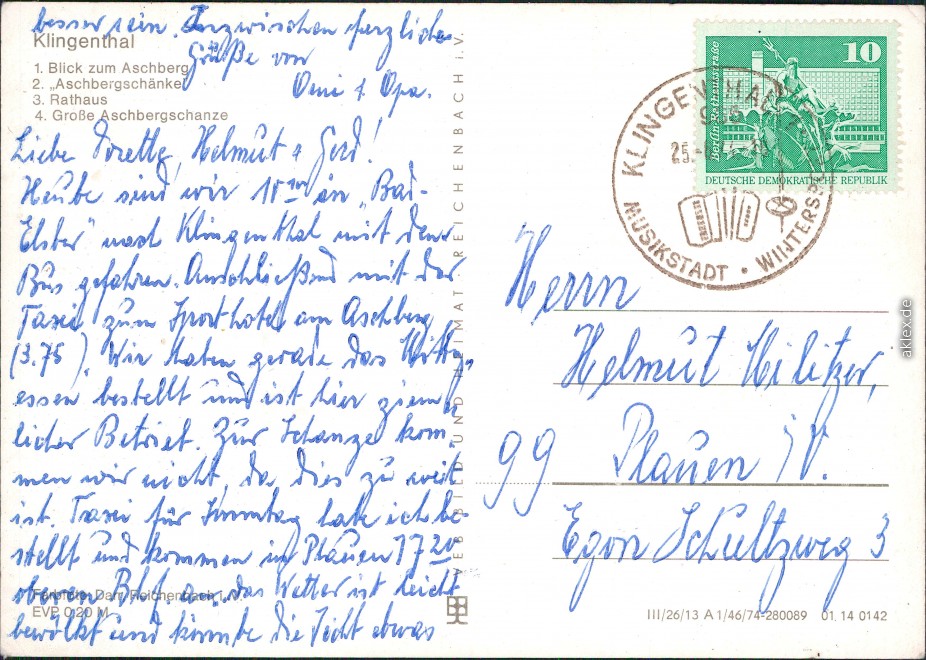 besser sein. Inzwischen herzliche
Grüße von
Omi & Opa.
Klingenthal
1. Blick zum Aschberg
2. „Aschbergschänke"
3. Rathaus
4. Große Aschbergschanze
Liebe Dorette, Helmut & Gerd!
Heute sind wir 10 in „Bad-
Elster" nach Klingenthal mit dem
Bus gefahren. Anschließend mit der
Taxi zum Sporthotel am Aschberg
(3.75). Wir haben gerade das Mittag-
essen bestellt und ist hier ziem-
licher Betrieb. Zur Schanze kom-
men wir nicht, da dies zu weit
ist. Taxi für Sonntag habe ich be-
stellt und kommen in Plauen 17 20
oberen Bhf. an. das Wetter ist leicht
bewölkt und könnte die Sicht etwas
Farbfoto: Darr, Reichenbach i. V.
EVP 0,20 M
VEB BILD UND HEIMAT REICHENBACH i. V.
10
DEUTSCHE DEMOKRATISCHE REPUBLIK
KLINGENTHAL
MUSIKSTADT • WINTERSP
Herrn
Helmut Militzer,
99 Plauen i/V.
Egon Schultzweg 3
III/26/13 A 1/46/74-280089 01 14 0142
aklex.de